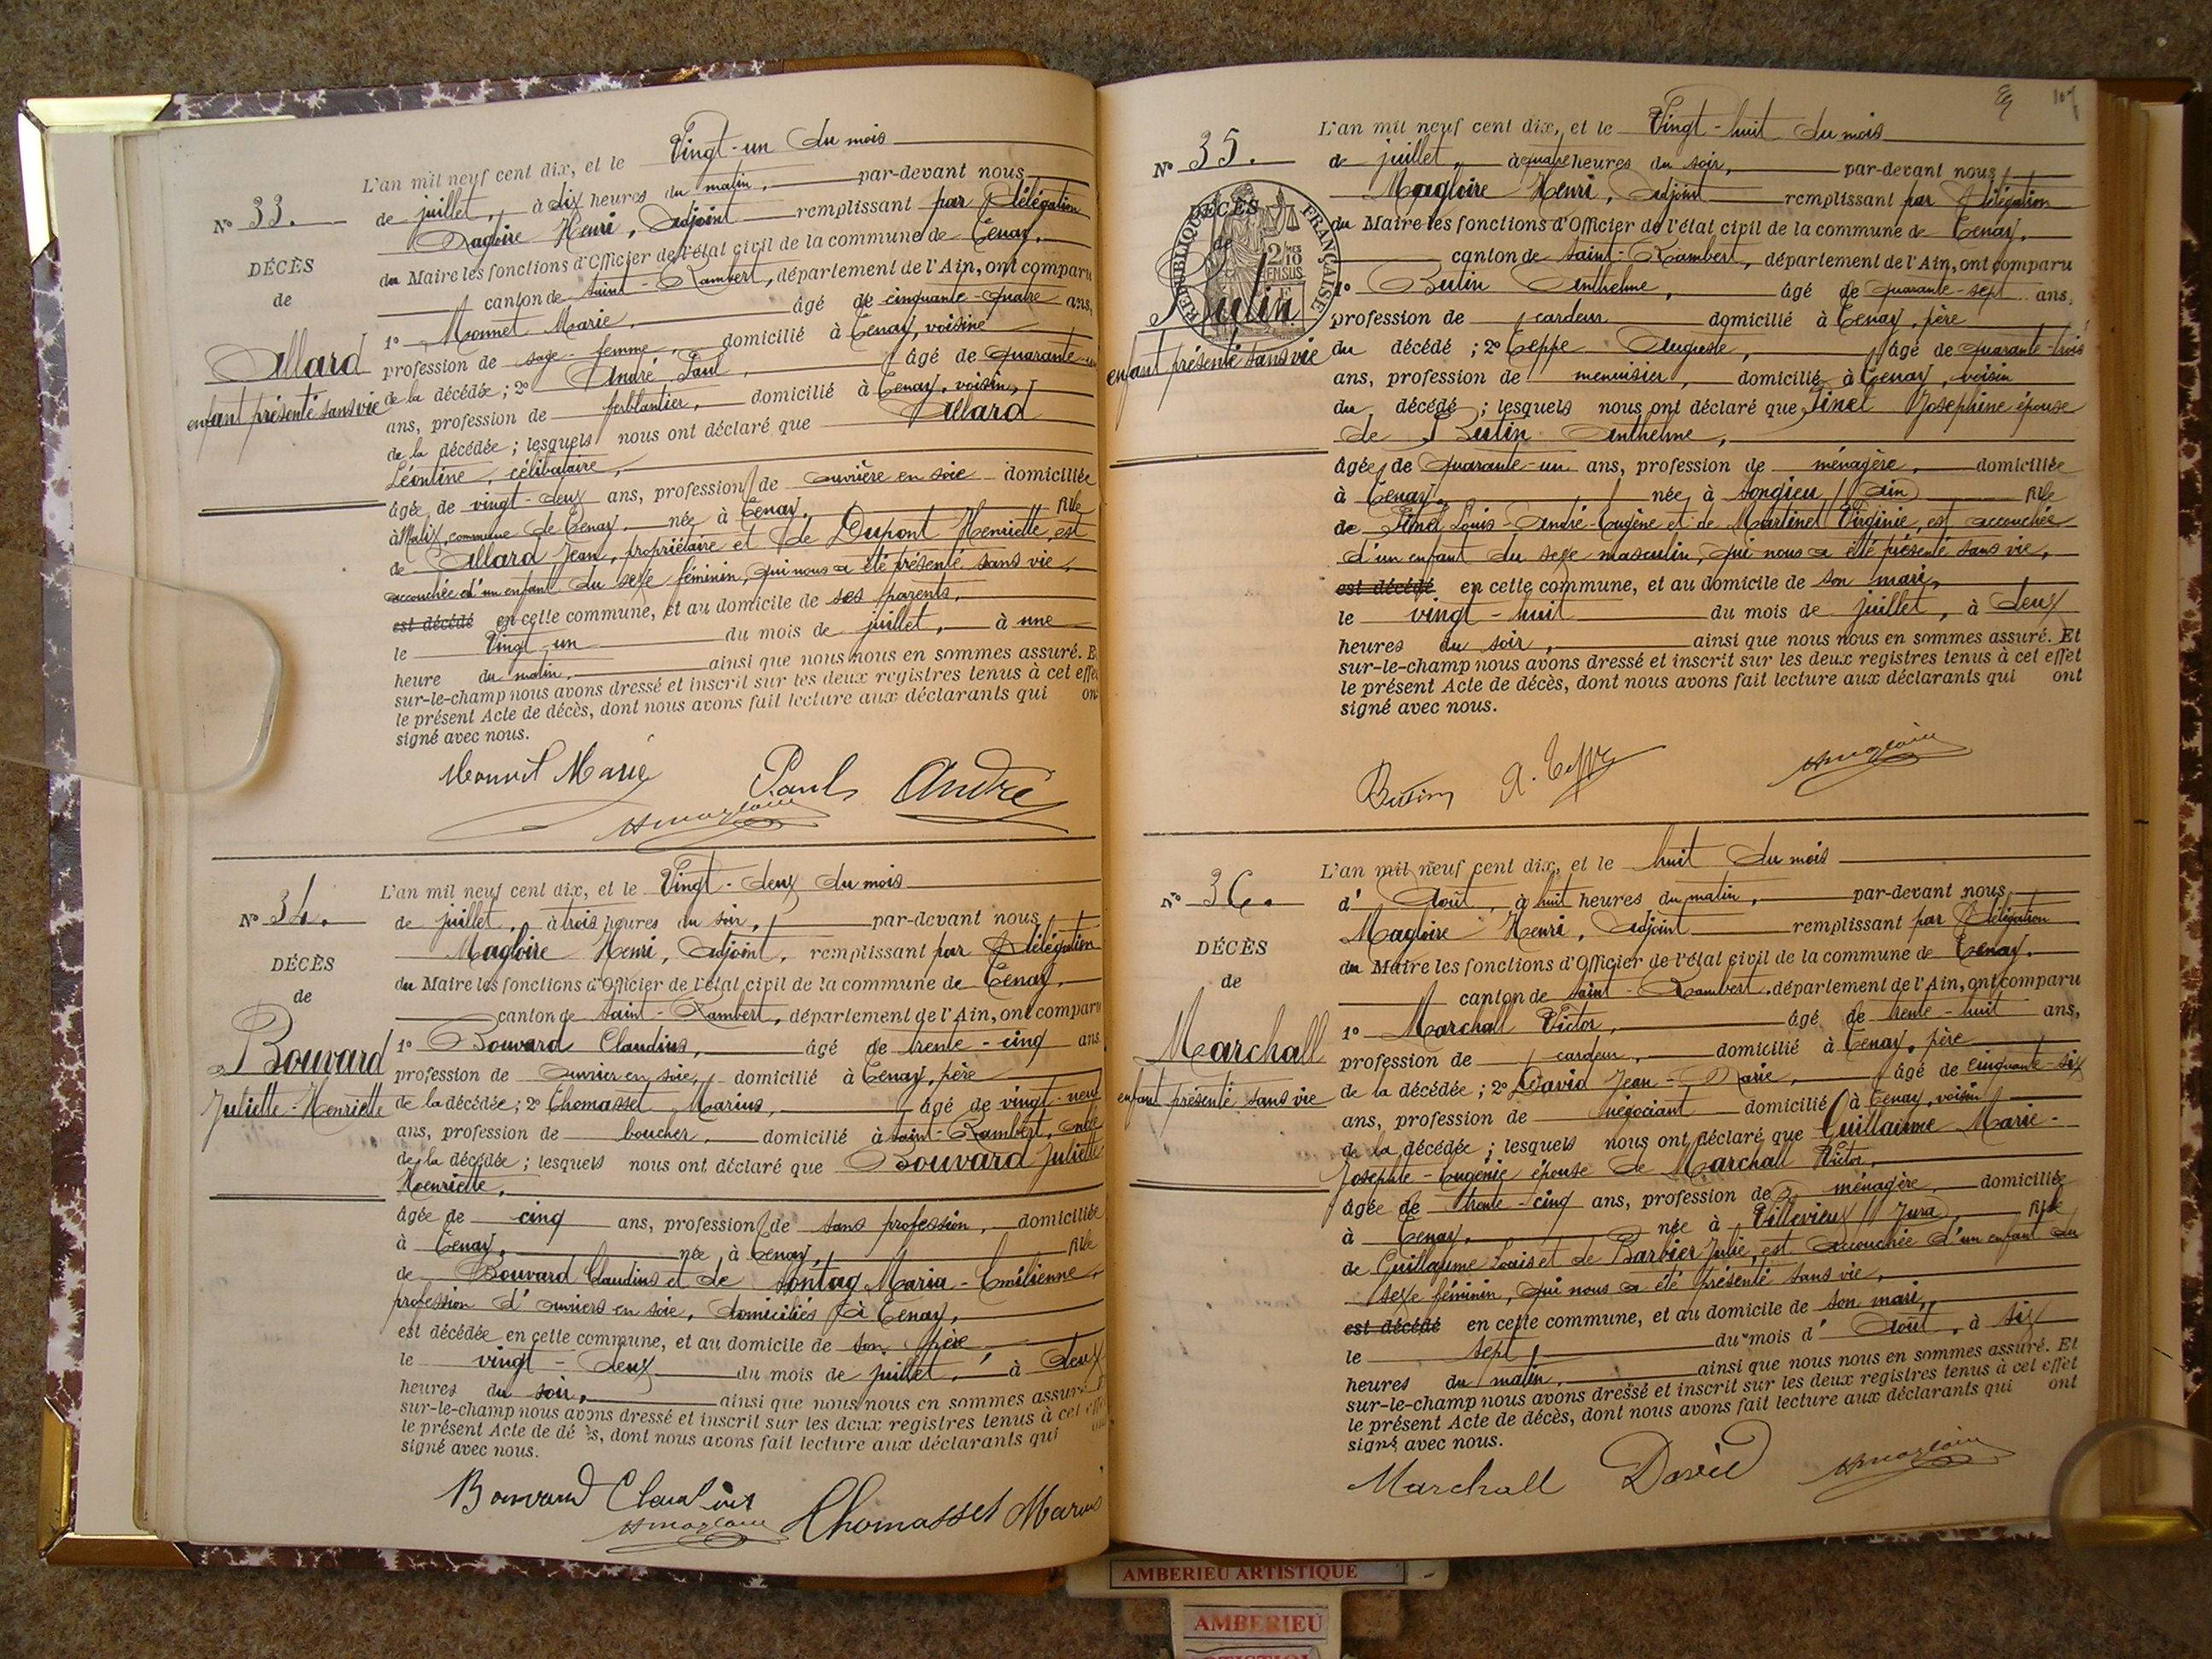 L'an mil neuf cent dix, et le Vingt-un du mois
N° 33.
de juillet, à dix heures du matin, par-devant nous
Magloire Henri, Adjoint remplissant par Délégation
du Maire les fonctions d'Officier de l'état civil de la commune de Tenay,
canton de Saint-Rambert, département de l'Ain, ont comparu
DÉCÈS
de
Allard
enfant présenté sans vie
1° Monnet Marie, âgé de cinquante-quatre ans,
profession de sage-femme, domicilié à Tenay, voisine
de la décédée; 2° André Paul, âgé de quarante-un
ans, profession de ferblantier, domicilié à Tenay, voisin,
de la décédée; lesquels nous ont déclaré que Allard
Léontine, célibataire,
âgée de vingt-deux ans, profession de ouvrière en soie domiciliée
à Malix, commune de Tenay, née à Tenay, fille
de Allard Jean, propriétaire et de Dupont Henriette, est
accouchée d'un enfant du sexe féminin, qui nous a été présenté sans vie,
est décédé en cette commune, et au domicile de ses parents,
le Vingt un du mois de juillet, à une
heure du matin, ainsi que nous nous en sommes assuré. E
sur-le-champ nous avons dressé et inscrit sur les deux registres tenus à cet effe
le présent Acte de décès, dont nous avons fait lecture aux déclarants qui on
signé avec nous.
Monnet Marie Paul André
HMagloire
L'an mil neuf cent dix, et le Vingt-deux du mois
N° 34.
de juillet, à trois heures du soir, par-devant nous
Magloire Henri, Adjoint, remplissant par Délégation
du Maire les fonctions d'Officier de l'état civil de la commune de Tenay,
canton de Saint-Rambert, département de l'Ain, ont comparu
DÉCÈS
de
Bouvard
Juliette-Henriette
1° Bouvard Claudius, âgé de trente-cinq ans
profession de Ouvrier en soie, domicilié à Tenay, père
de la décédée; 2° Thomasset Marius, âgé de vingt-neuf
ans, profession de boucher, domicilié à Saint-Rambert, oncle
de la décédée; lesquels nous ont déclaré que Bouvard Juliette
Henriette,
âgée de cinq ans, profession de sans profession, domiciliée
à Tenay, née à Tenay, fille
de Bouvard Claudius et de Sontag Maria-Emilienne,
profession d'ouvriers en soie, domiciliés à Tenay,
est décédée en cette commune, et au domicile de son père
le vingt-deux du mois de juillet, à deux
heures du soir, ainsi que nous nous en sommes assur
sur-le-champ nous avons dressé et inscrit sur les deux registres tenus à cet effe
le présent Acte de décès, dont nous avons fait lecture aux déclarants qui on
signé avec nous.
Bouvard Claudius Thomasset Marius
HMagloire
107
L'an mil neuf cent dix, et le Vingt-huit du mois
N° 35.
de juillet, à quatre heures du soir, par-devant nous
Magloire Henri, Adjoint remplissant par Délégation
du Maire les fonctions d'Officier de l'état civil de la commune de Tenay,
canton de Saint-Rambert, département de l'Ain, ont comparu
RÉPUBLIQUE FRANÇAISE
2/10 EN SUS
DÉCÈS
de
Butin
enfant présenté sans vie
1° Butin Anthelme, âgé de quarante-sept ans,
profession de cardeur domicilié à Tenay, père
du décédé; 2° Teppe Auguste, âgé de quarante-trois
ans, profession de menuisier, domicilié à Tenay, voisin
du décédé; lesquels nous ont déclaré que Finet Josephine épouse
de Butin Anthelme,
âgée de quarante-un ans, profession de ménagère, domiciliée
à Tenay, née à Songieu (Ain) fille
de Finet Louis-André-Eugène et de Martinet Virginie, est accouchée
d'un enfant du sexe masculin, qui nous a été présenté sans vie,
est décédé en cette commune, et au domicile de son mari,
le vingt-huit du mois de juillet, à deux
heures du soir, ainsi que nous nous en sommes assuré. Et
sur-le-champ nous avons dressé et inscrit sur les deux registres tenus à cet effet
le présent Acte de décès, dont nous avons fait lecture aux déclarants qui ont
signé avec nous.
Butin A. Teppe HMagloire
L'an mil neuf cent dix, et le huit du mois
N° 36.
d'Août, à huit heures du matin, par-devant nous
Magloire Henri, Adjoint remplissant par Délégation
du Maire les fonctions d'Officier de l'état civil de la commune de Tenay,
canton de Saint-Rambert, département de l'Ain, ont comparu
DÉCÈS
de
Marchall
enfant présenté sans vie
1° Marchall Victor, âgé de trente-huit ans,
profession de cardeur, domicilié à Tenay, père
de la décédée; 2° David Jean-Marie, âgé de cinquante-six
ans, profession de négociant domicilié à Tenay, voisin
de la décédée; lesquels nous ont déclaré que Guillaume Marie-
Josephte-Eugénie épouse de Marchall Victor,
âgée de trente-cinq ans, profession de ménagère, domiciliée
à Tenay, née à Villevieux (Jura), fille
de Guillaume Louis et de Barbier Julie, est accouchée d'un enfant du
sexe féminin, qui nous a été présenté sans vie,
est décédé en cette commune, et au domicile de son mari,
le sept du mois d'Août, à six
heures du matin, ainsi que nous nous en sommes assuré. Et
sur-le-champ nous avons dressé et inscrit sur les deux registres tenus à cet effet
le présent Acte de décès, dont nous avons fait lecture aux déclarants qui ont
signé avec nous.
Marchall David HMagloire
AMBERIEU ARTISTIQUE
AMBERIEU